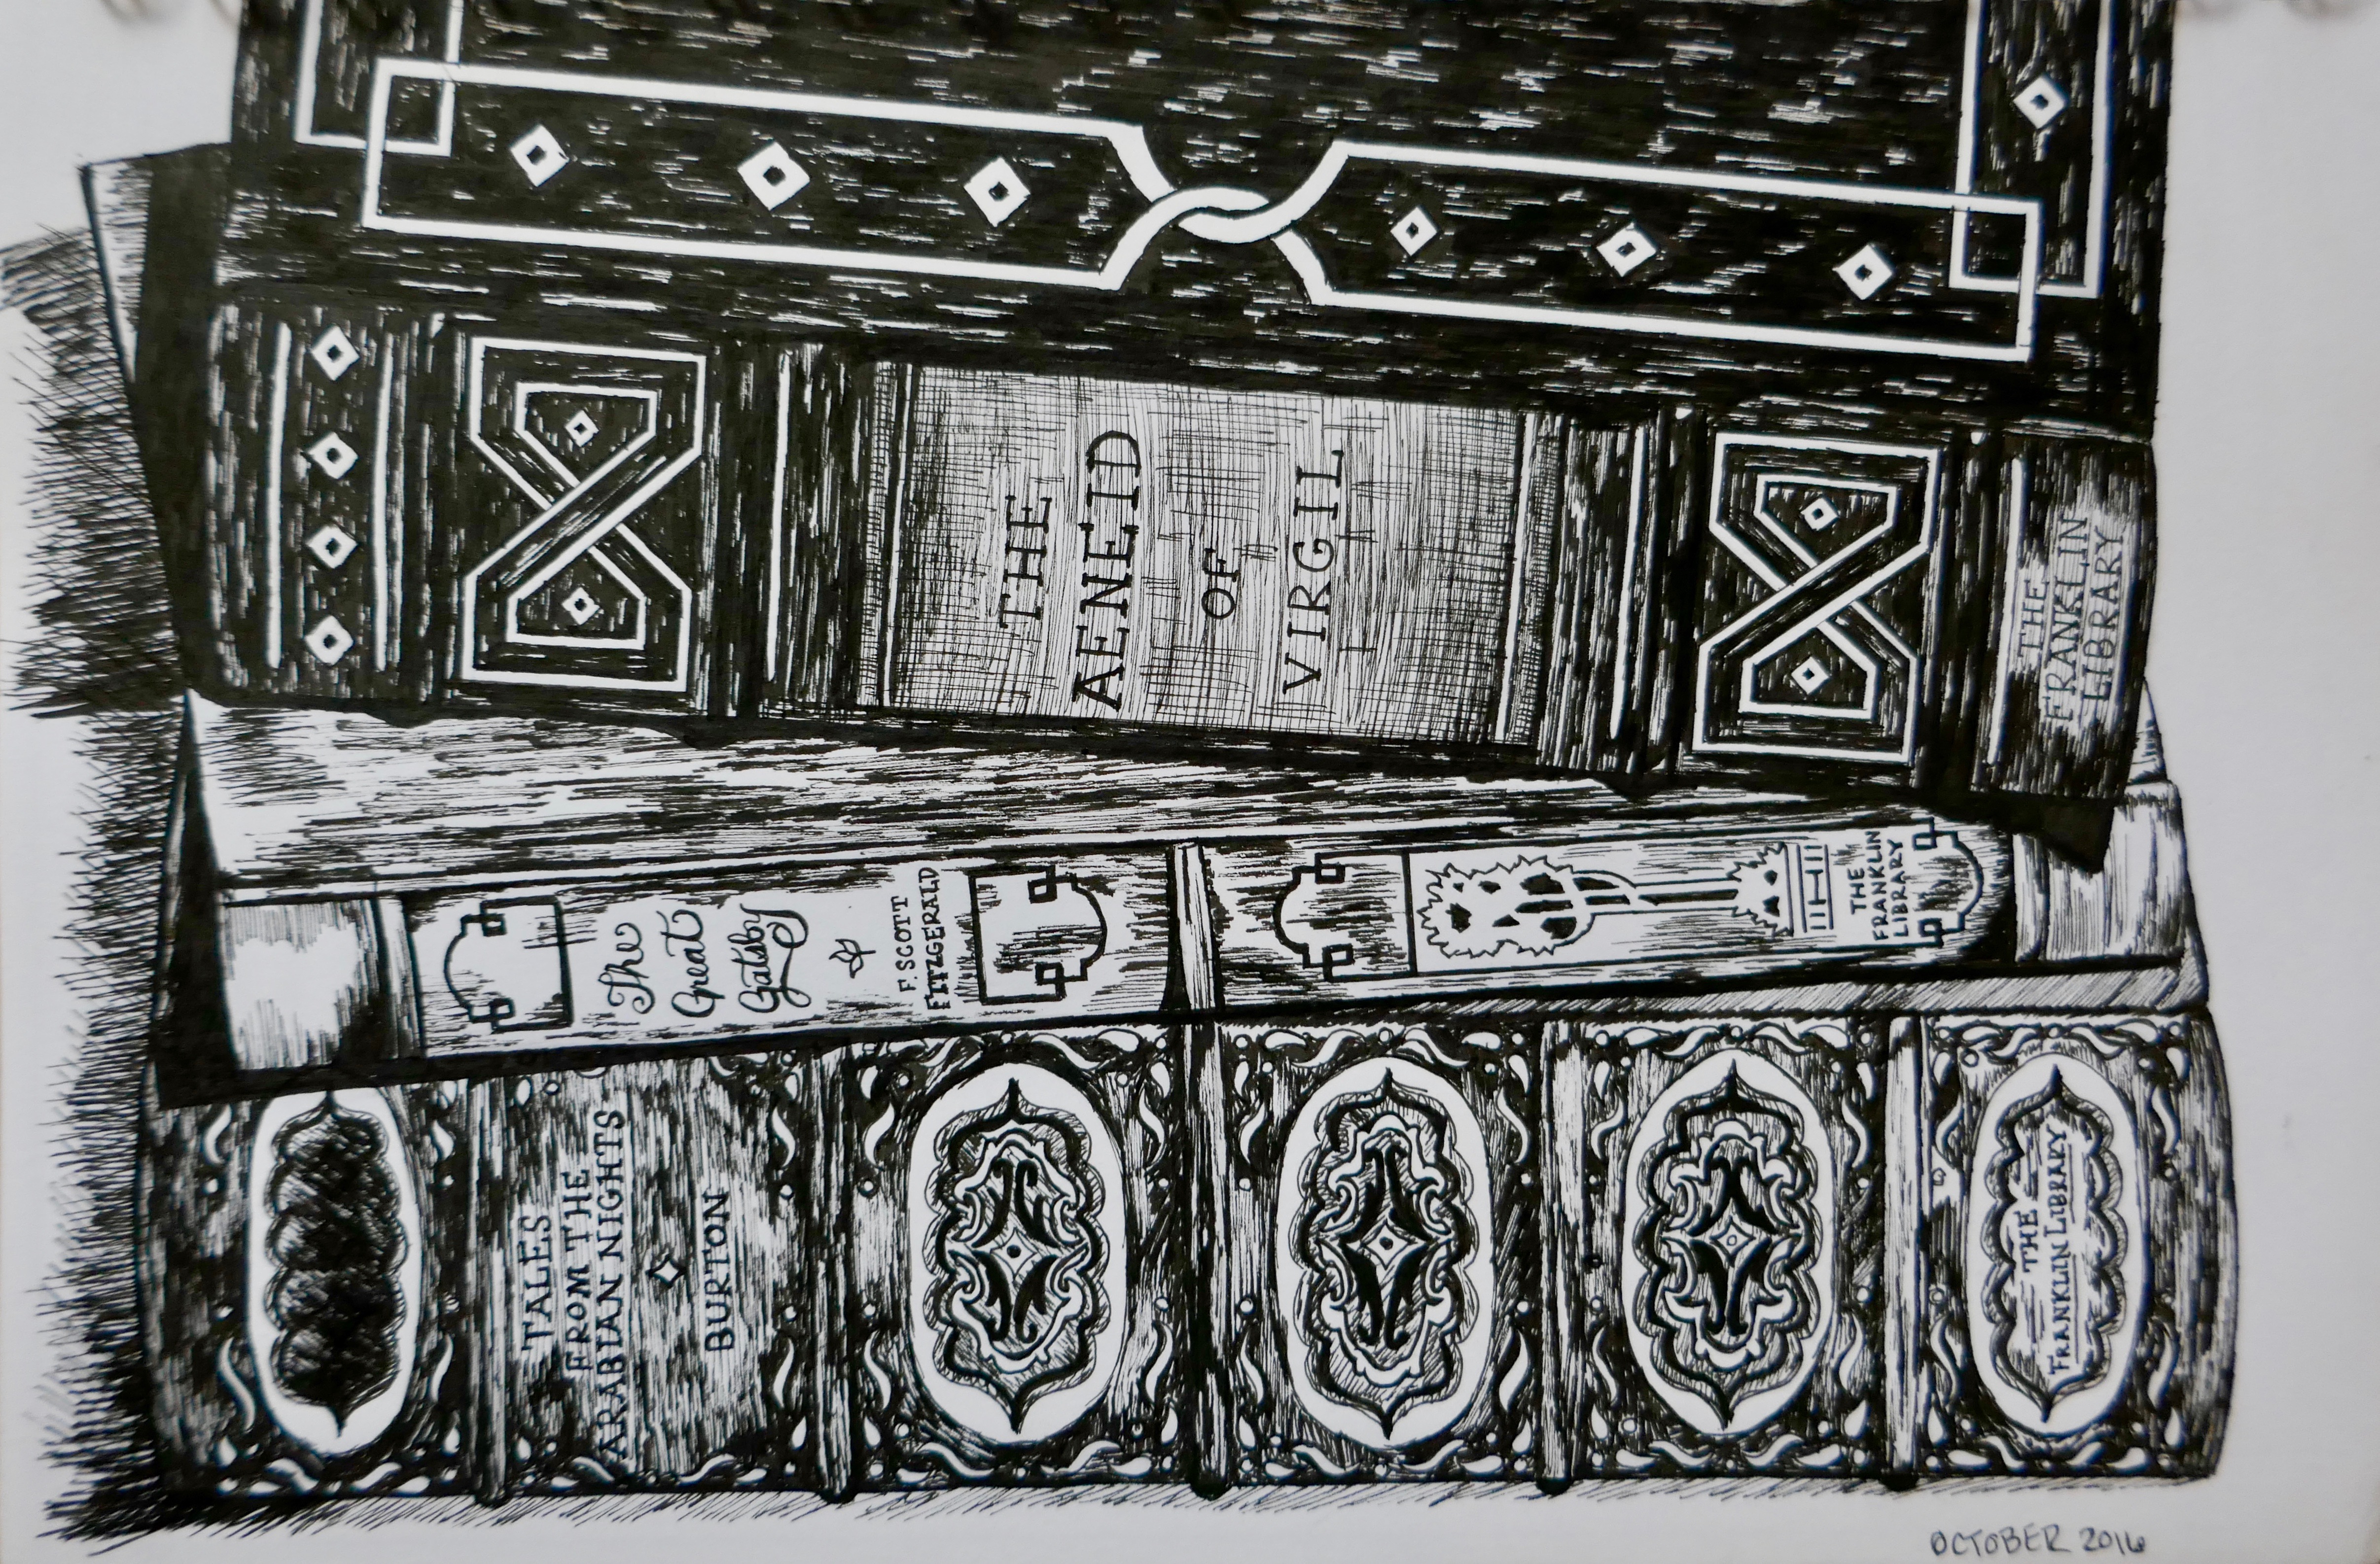 THE
AENEID
OF
VIRGIL
THE
FRANKLIN
LIBRARY
The
Great
Gatsby
F. SCOTT
FITZGERALD
THE
FRANKLIN
LIBRARY
TALES
FROM THE
ARABIAN NIGHTS
BURTON
THE
FRANKLIN LIBRARY
OCTOBER 2016